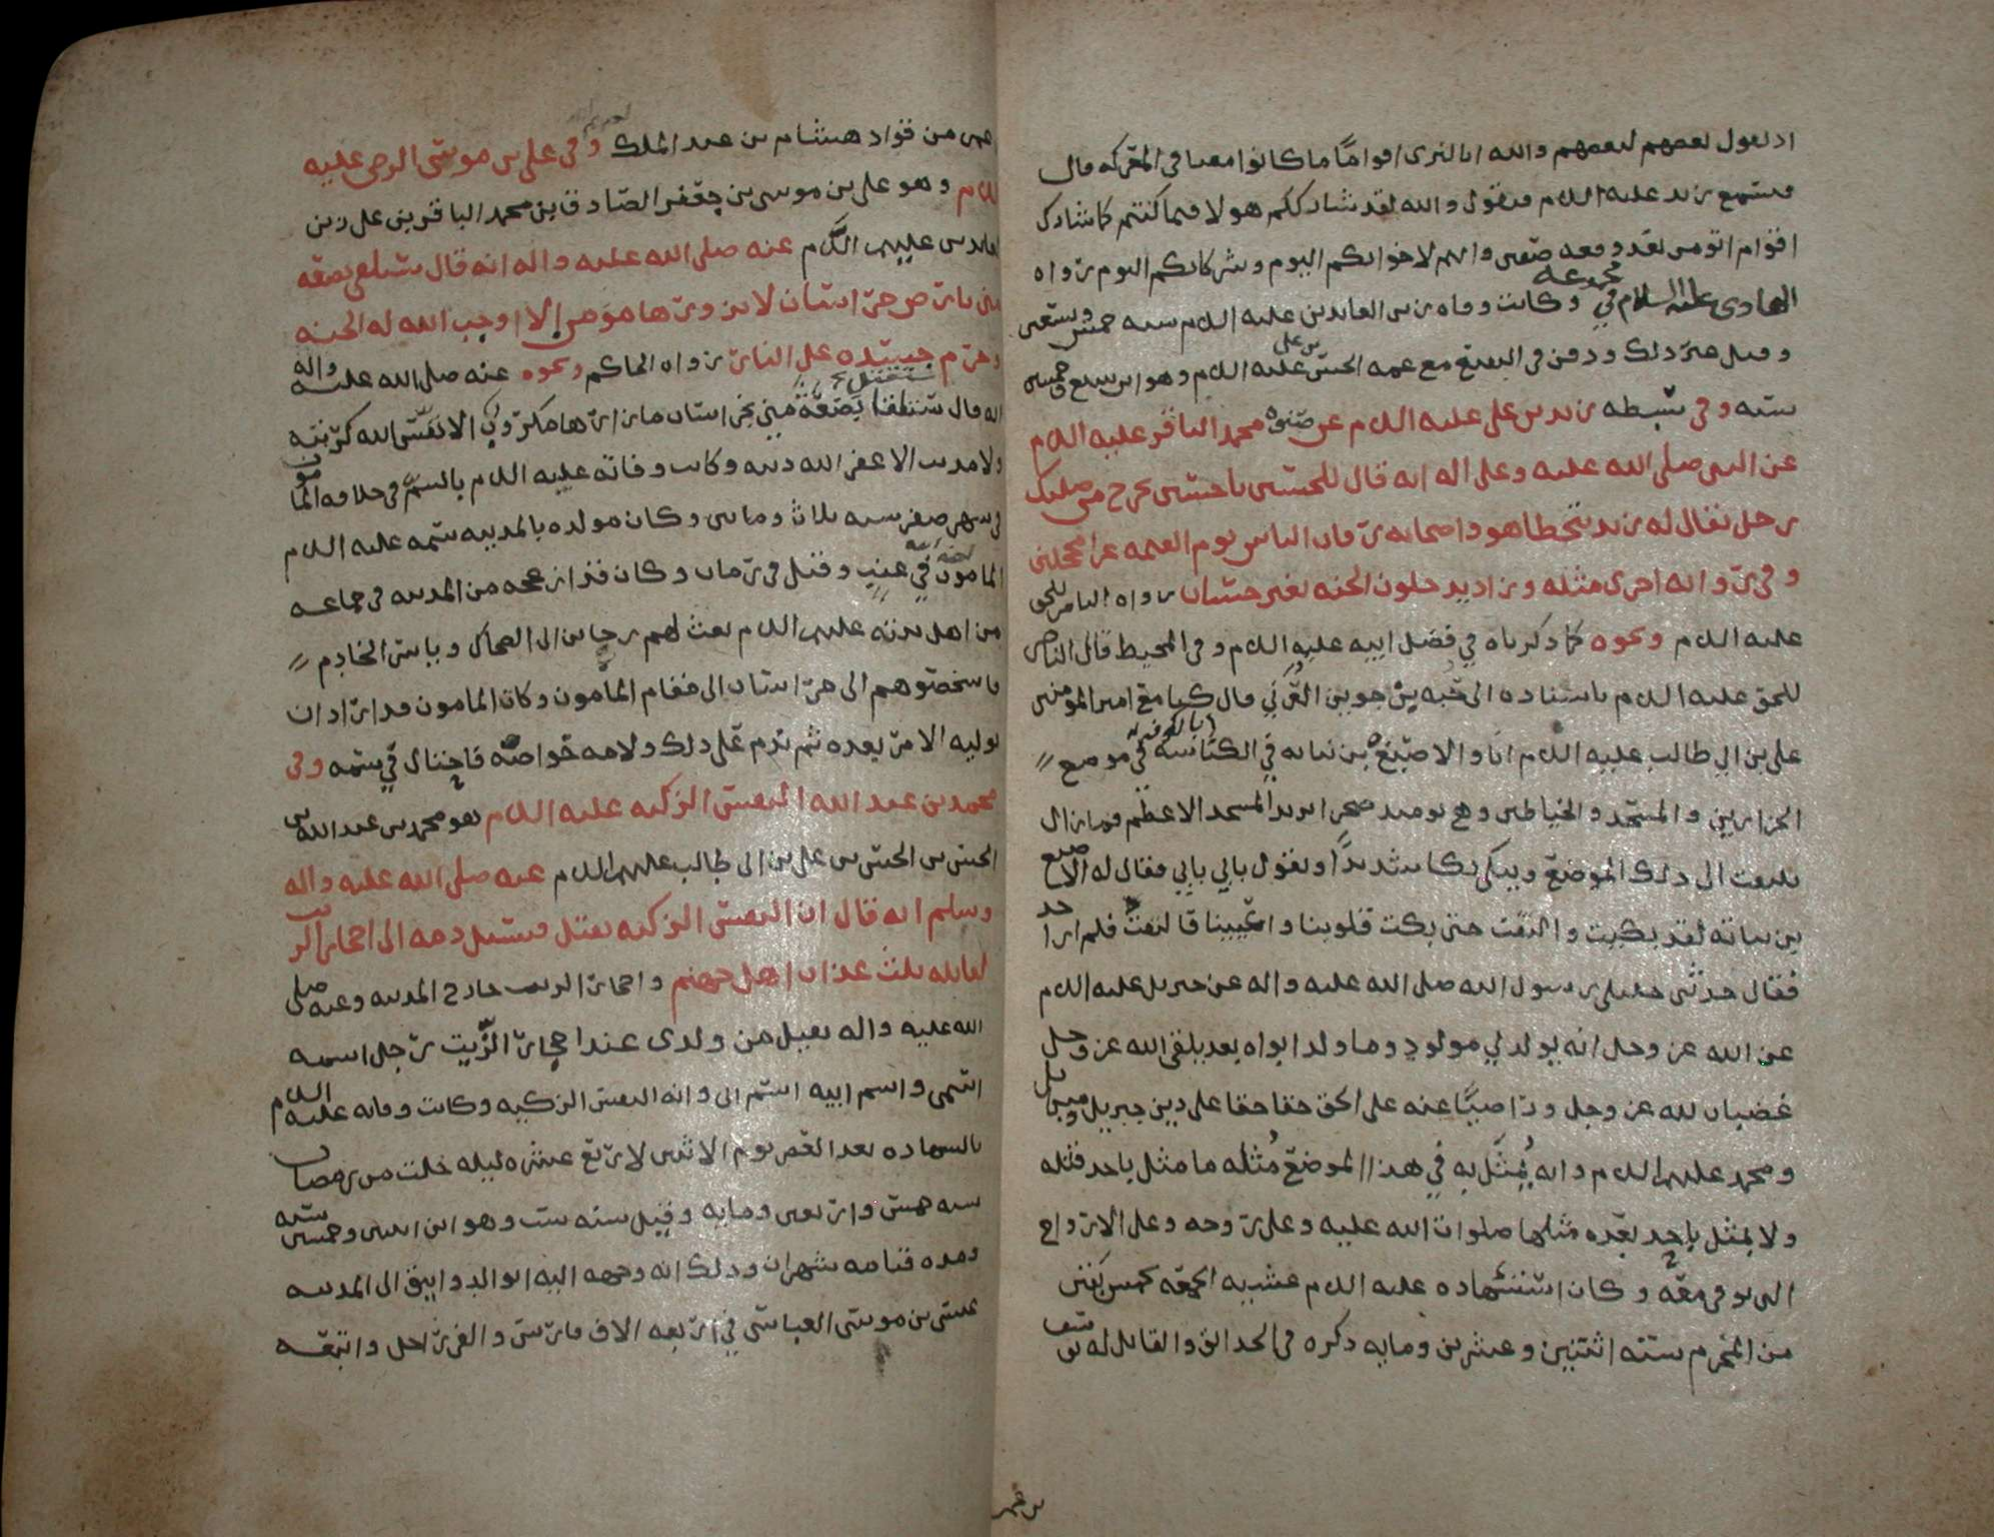 اذ يقول بعضهم لبعضهم والله انا لنرى اقواما ما كانوا معنا في المعركة قال
فيستمع زيد عليه السلام فيقول والله لقد شارككم هولا فيما كنتم كما شارك
اقوام اتو من بعد وقعه صفين وانهم لاخوانكم اليوم وشركاكم اليوم رواه
الهادي عليه السلام في مجموعه وكانت وفاه زين العابدين عليه السلام سنه خمس وتسعين
وقيل غير ذلك ودفن في البقيع مع عمه الحسن بن علي عليه السلام وهو ابن سبع وخمسين
سنه وفي سبطه زيد بن علي عليه السلام عن صنوه محمد الباقر عليه السلام
عن النبي صلى الله عليه وعلى اله انه قال للحسين يا حسين يخرج من صلبك
رجل يقال له زيد يتخطا هو واصحابه رقاب الناس يوم القيمه غرا محجلين
وفي روايه اخرى مثله وزاد يدخلون الجنه بغير حساب رواه الناصر للحق
عليه السلام ونحوه كما ذكرناه في فضل ابيه عليه السلام وفي المحيط قال الناصر
للحق عليه السلام باسناده الى حبه بن جوين العرني قال كنا مع امير المومنين
علي بن ابي طالب عليه السلام انا والاصبغ بن نباته في الكناسه بالكوفه في موضع
الجزارين والمسجد والخياطين وهي يوميذ صحرا يريد المسجد الاعظم فما زال
يلتفت الى ذلك الموضع ويبكي بكا شديدا ويقول بابي بابي فقال له الاصبغ
بن نباته لقد بكيت والتفت حتى بكت قلوبنا واعيننا فالتفت فلم ار احد
فقال حدثني خليلي رسول الله صلى الله عليه واله عن جبريل عليه السلام
عن الله عز وجل انه يولد لي مولود وما ولد ابواه بعد يلقى الله عز وجل
غضبان لله عز وجل وراضيا عنه على الحق حقا حقا على دين جبريل وميكايل
ومحمد عليهم السلام وانه يمثل به في هذا الموضع مثله ما مثل باحد قبله
ولا يمثل باحد بعده مثلها صلوات الله عليه وعلى روحه وعلى الارواح
التي توفى معه وكان استشهاده عليه السلام عشيه الجمعه لخمس بقين
من المحرم سنه اثنتين وعشرين ومايه ذكره في الحدايق والقاتل له يوسف
بن عمر
من قواد هشام بن عبد الملك وفي علي بن موسى الرضى عليه
السلام وهو علي بن موسى بن جعفر الصادق بن محمد الباقر بن علي زين
العابدين عليهم السلام عنه صلى الله عليه واله انه قال ستدفن بضعه
مني بارض خراسان لا يزورها مومن الا اوجب الله له الجنه
وحرم جسده على النار رواه الحاكم ونحوه عنه صلى الله عليه واله
انه قال ستقتل بضعة مني بخراسان ما زارها مكروب الا نفس الله كربته
ولا مذنب الا غفر الله ذنبه وكانت وفاته عليه السلام بالسم في خلافه المامون
في شهر صفر سنه ثلاث وماتين وكان مولده بالمدينه سمه عليه السلام
المامون لعنه الله في عنب وقيل في رمان وكان قد ازعجه من المدينه في جماعه
من اهل بيته عليهم السلام بعث لهم رجا بن ابي الضحاك وياسر الخادم
فاشخصوهم الى خراسان الى مقام المامون وكان المامون قد اراد ان
يوليه الامر بعده ثم ندم على ذلك ولامه خواصه فاحتال في سمه وفي
محمد بن عبد الله النفس الزكيه عليه السلام هو محمد بن عبد الله بن
الحسن بن الحسن بن علي بن ابي طالب عليهم السلام عنه صلى الله عليه واله
وسلم انه قال ان النفس الزكيه يقتل فيسيل دمه الى احجار الزيت
لقاتله ثلث عذاب اهل جهنم واحجار الزيت خارج المدينه وعنه صلى
الله عليه واله يقتل من ولدي عند احجار الزيت رجل اسمه
اسمي واسم ابيه اسم ابي وانه النفس الزكيه وكانت وفاته عليه السلام
بالشهاده بعد العصر يوم الاثنين لاربع عشره ليله خلت من رمضان
سنه خمس واربعين ومايه وقيل سنه ست وهو ابن اثنين وخمسين سنه
ومده قيامه شهران وذلك انه وجهه اليه ابو الدوانيق الى المدينه
عيسى بن موسى العباسي في اربعه الاف فارس والفي راجل واتبعه